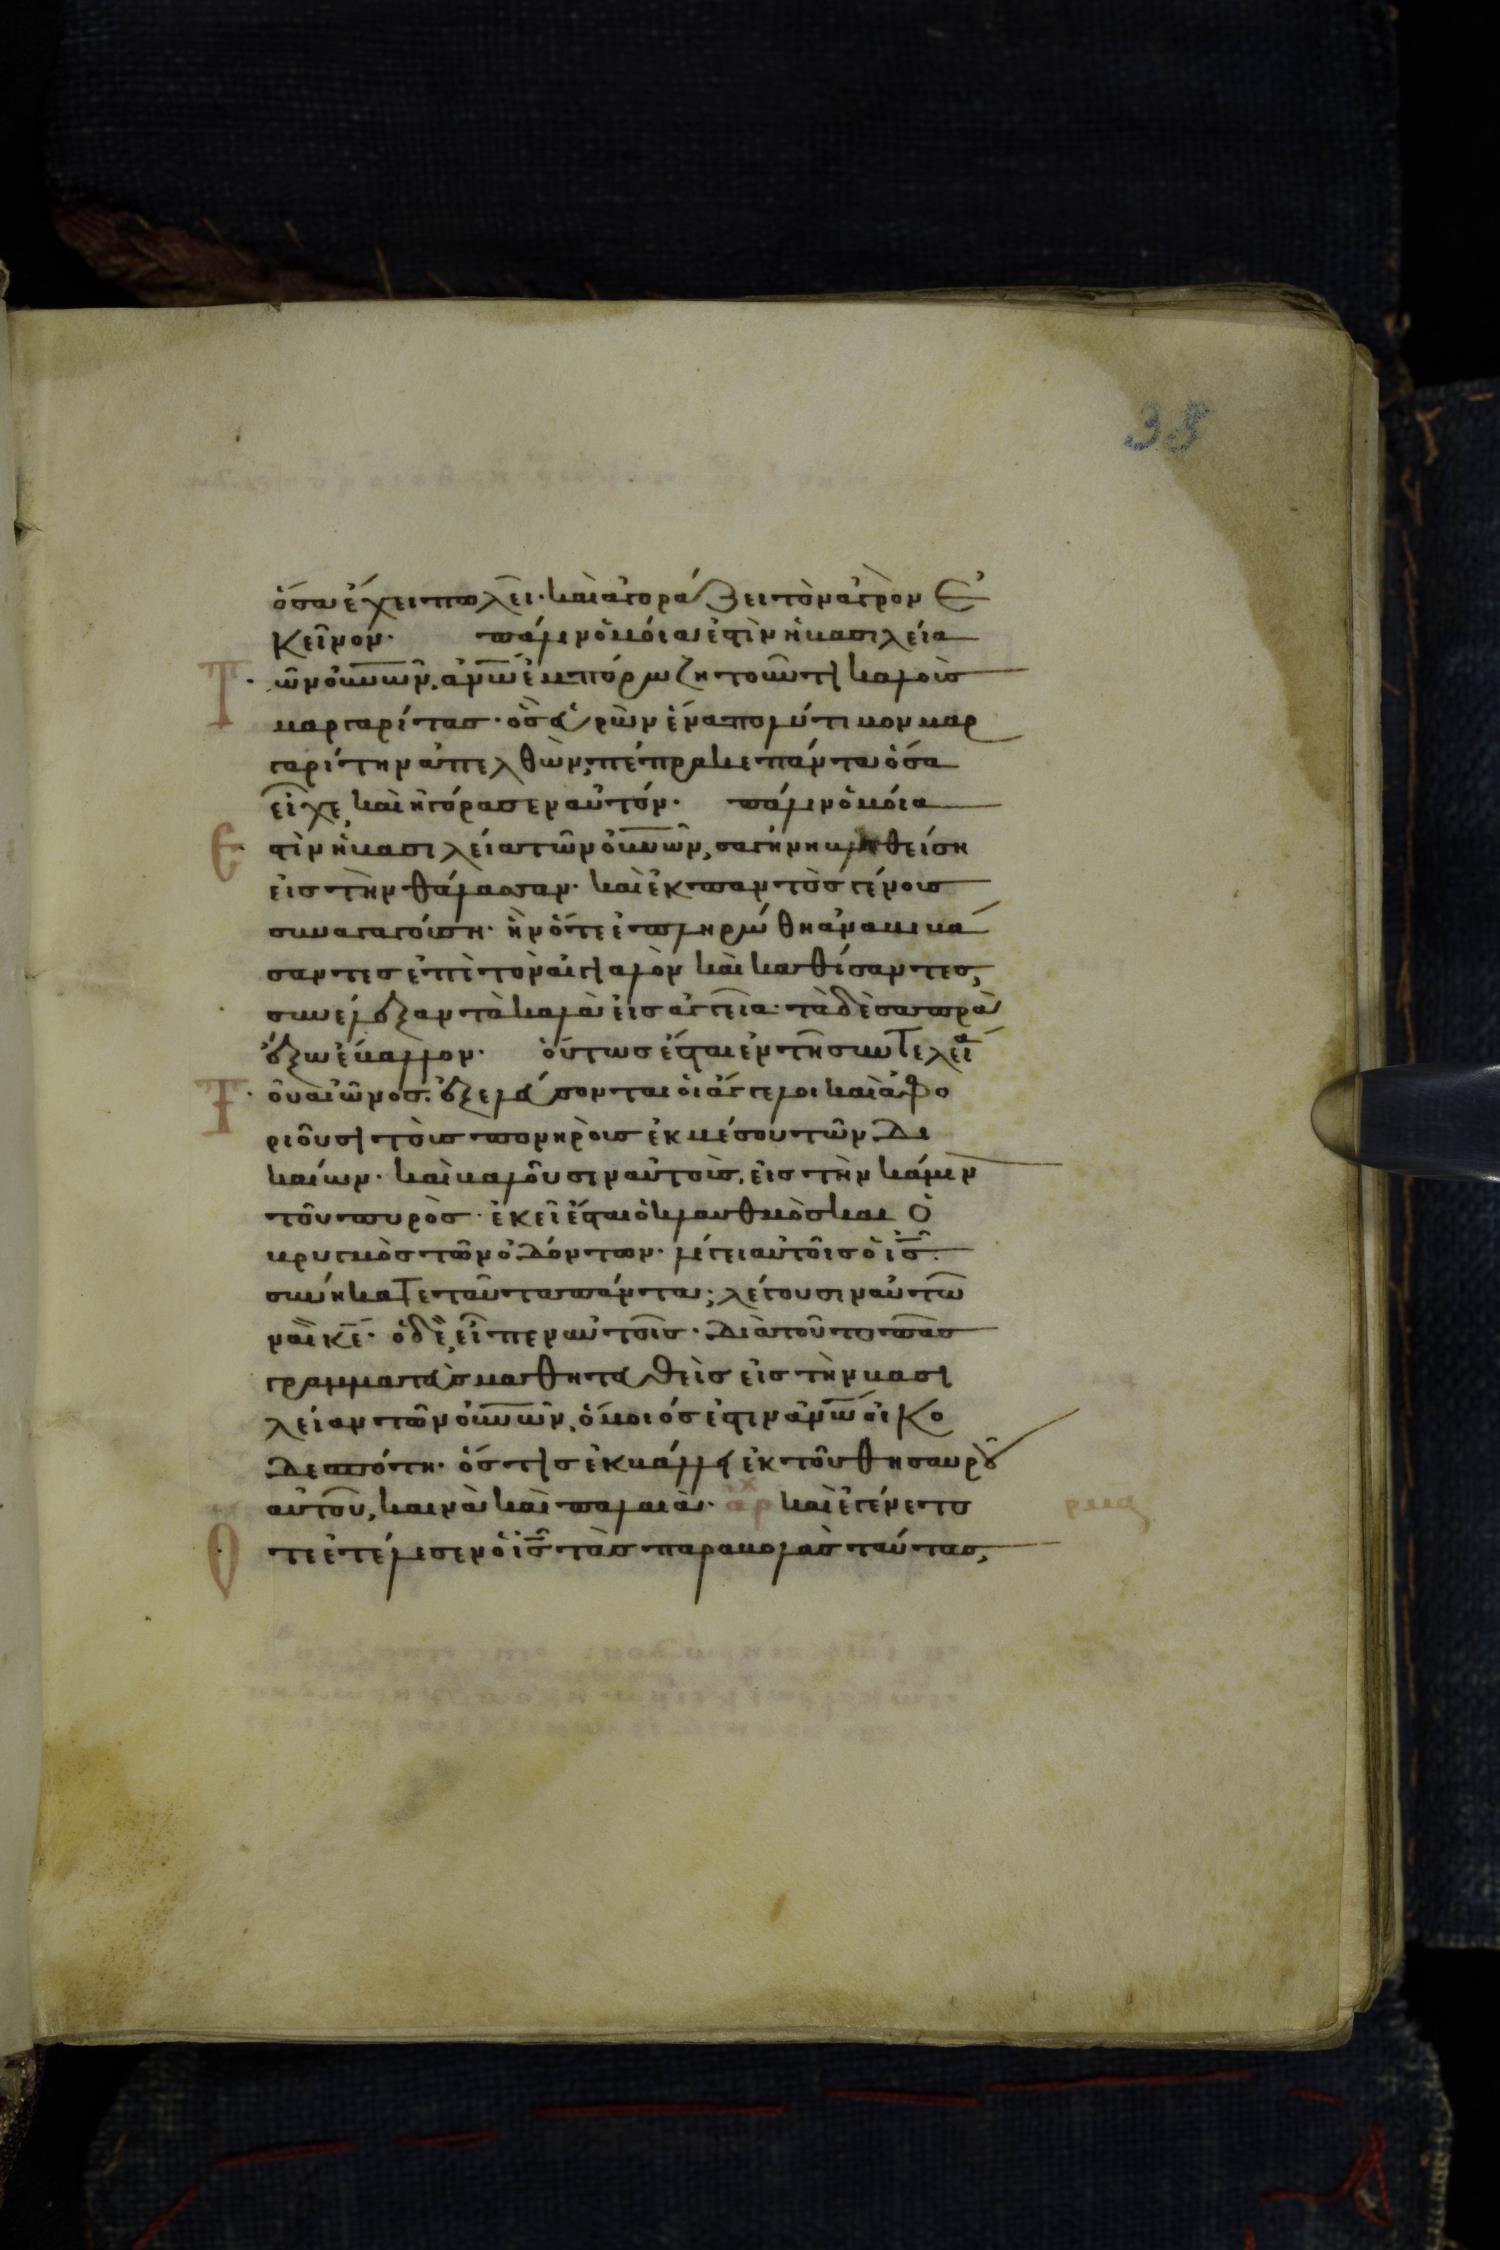 38
ὅσα ἔχει πωλεῖ· καὶ ἀγοράζει τὸν ἀγρὸν ἐ
κεῖνον· πάλιν ὁμοία ἐστὶν ἡ βασιλεία
Τῶν οὐνῶν, ἀνῶ ἐμπόρω ζητοῦντι καλοὺς
μαργαρίτας· ὃς εὑρὼν ἕνα πολύτιμον μαρ
γαρίτην ἀπελθὼν, πέπρακε πάντα ὅσα
εἶχε, καὶ ἠγόρασεν αὐτόν· πάλιν ὁμοία
Ἐστὶν ἡ βασιλεία τῶν οὐνῶν, σαγήνη βληθείση
εἰς τὴν θάλασσαν· καὶ ἐκ παντὸς γένους
συναγαγούση· ἣν ὅτε ἐπληρώθη ἀναβιβά
σαντες ἐπὶ τὸν αἰγιαλὸν καὶ καθίσαντες,
συνέλεξαν τὰ καλὰ εἰς ἀγγεῖα· τὰ δὲ σαπρὰ
ἔξω ἔβαλλον· οὕτως ἔσται ἐν τῆ συντελεία
Τοῦ αἰῶνος· ἐξελεύσονται οἱ ἄγγελοι καὶ ἀφο
ριοῦσι τοὺς πονηροὺς ἐκ μέσου τῶν δι
καίων· καὶ βαλοῦσιν αὐτοὺς, εἰς τὴν κάμιν
τοῦ πυρὸς· ἐκεῖ ἔσται ὁ κλαυθμὸς καὶ ὁ
βρυγμὸς τῶν ὀδόντων· λέγει αὐτοῖς ὁ ἰς·
συνήκατε ταῦτα πάντα; λέγουσιν αὐτῶ
ναὶ κε· ὁ δὲ, εἶπεν αὐτοῖς· διὰ τοῦτο πᾶς
γραμματεὺς μαθητευθεὶς εἰς τὴν βασι
λείαν τῶν οὐνῶν, ὅμοιός ἐστιν ἀνῶ οἰκο
δεσπότη· ὅστις ἐκβάλλει ἐκ τοῦ θησαυροῦ
αὐτοῦ, καινὰ καὶ παλαιὰ· ἀρχ καὶ ἐγένετο
Ὅτε ἐτέλεσεν ὁ ἰς τὰς παραβολὰς ταύτας,